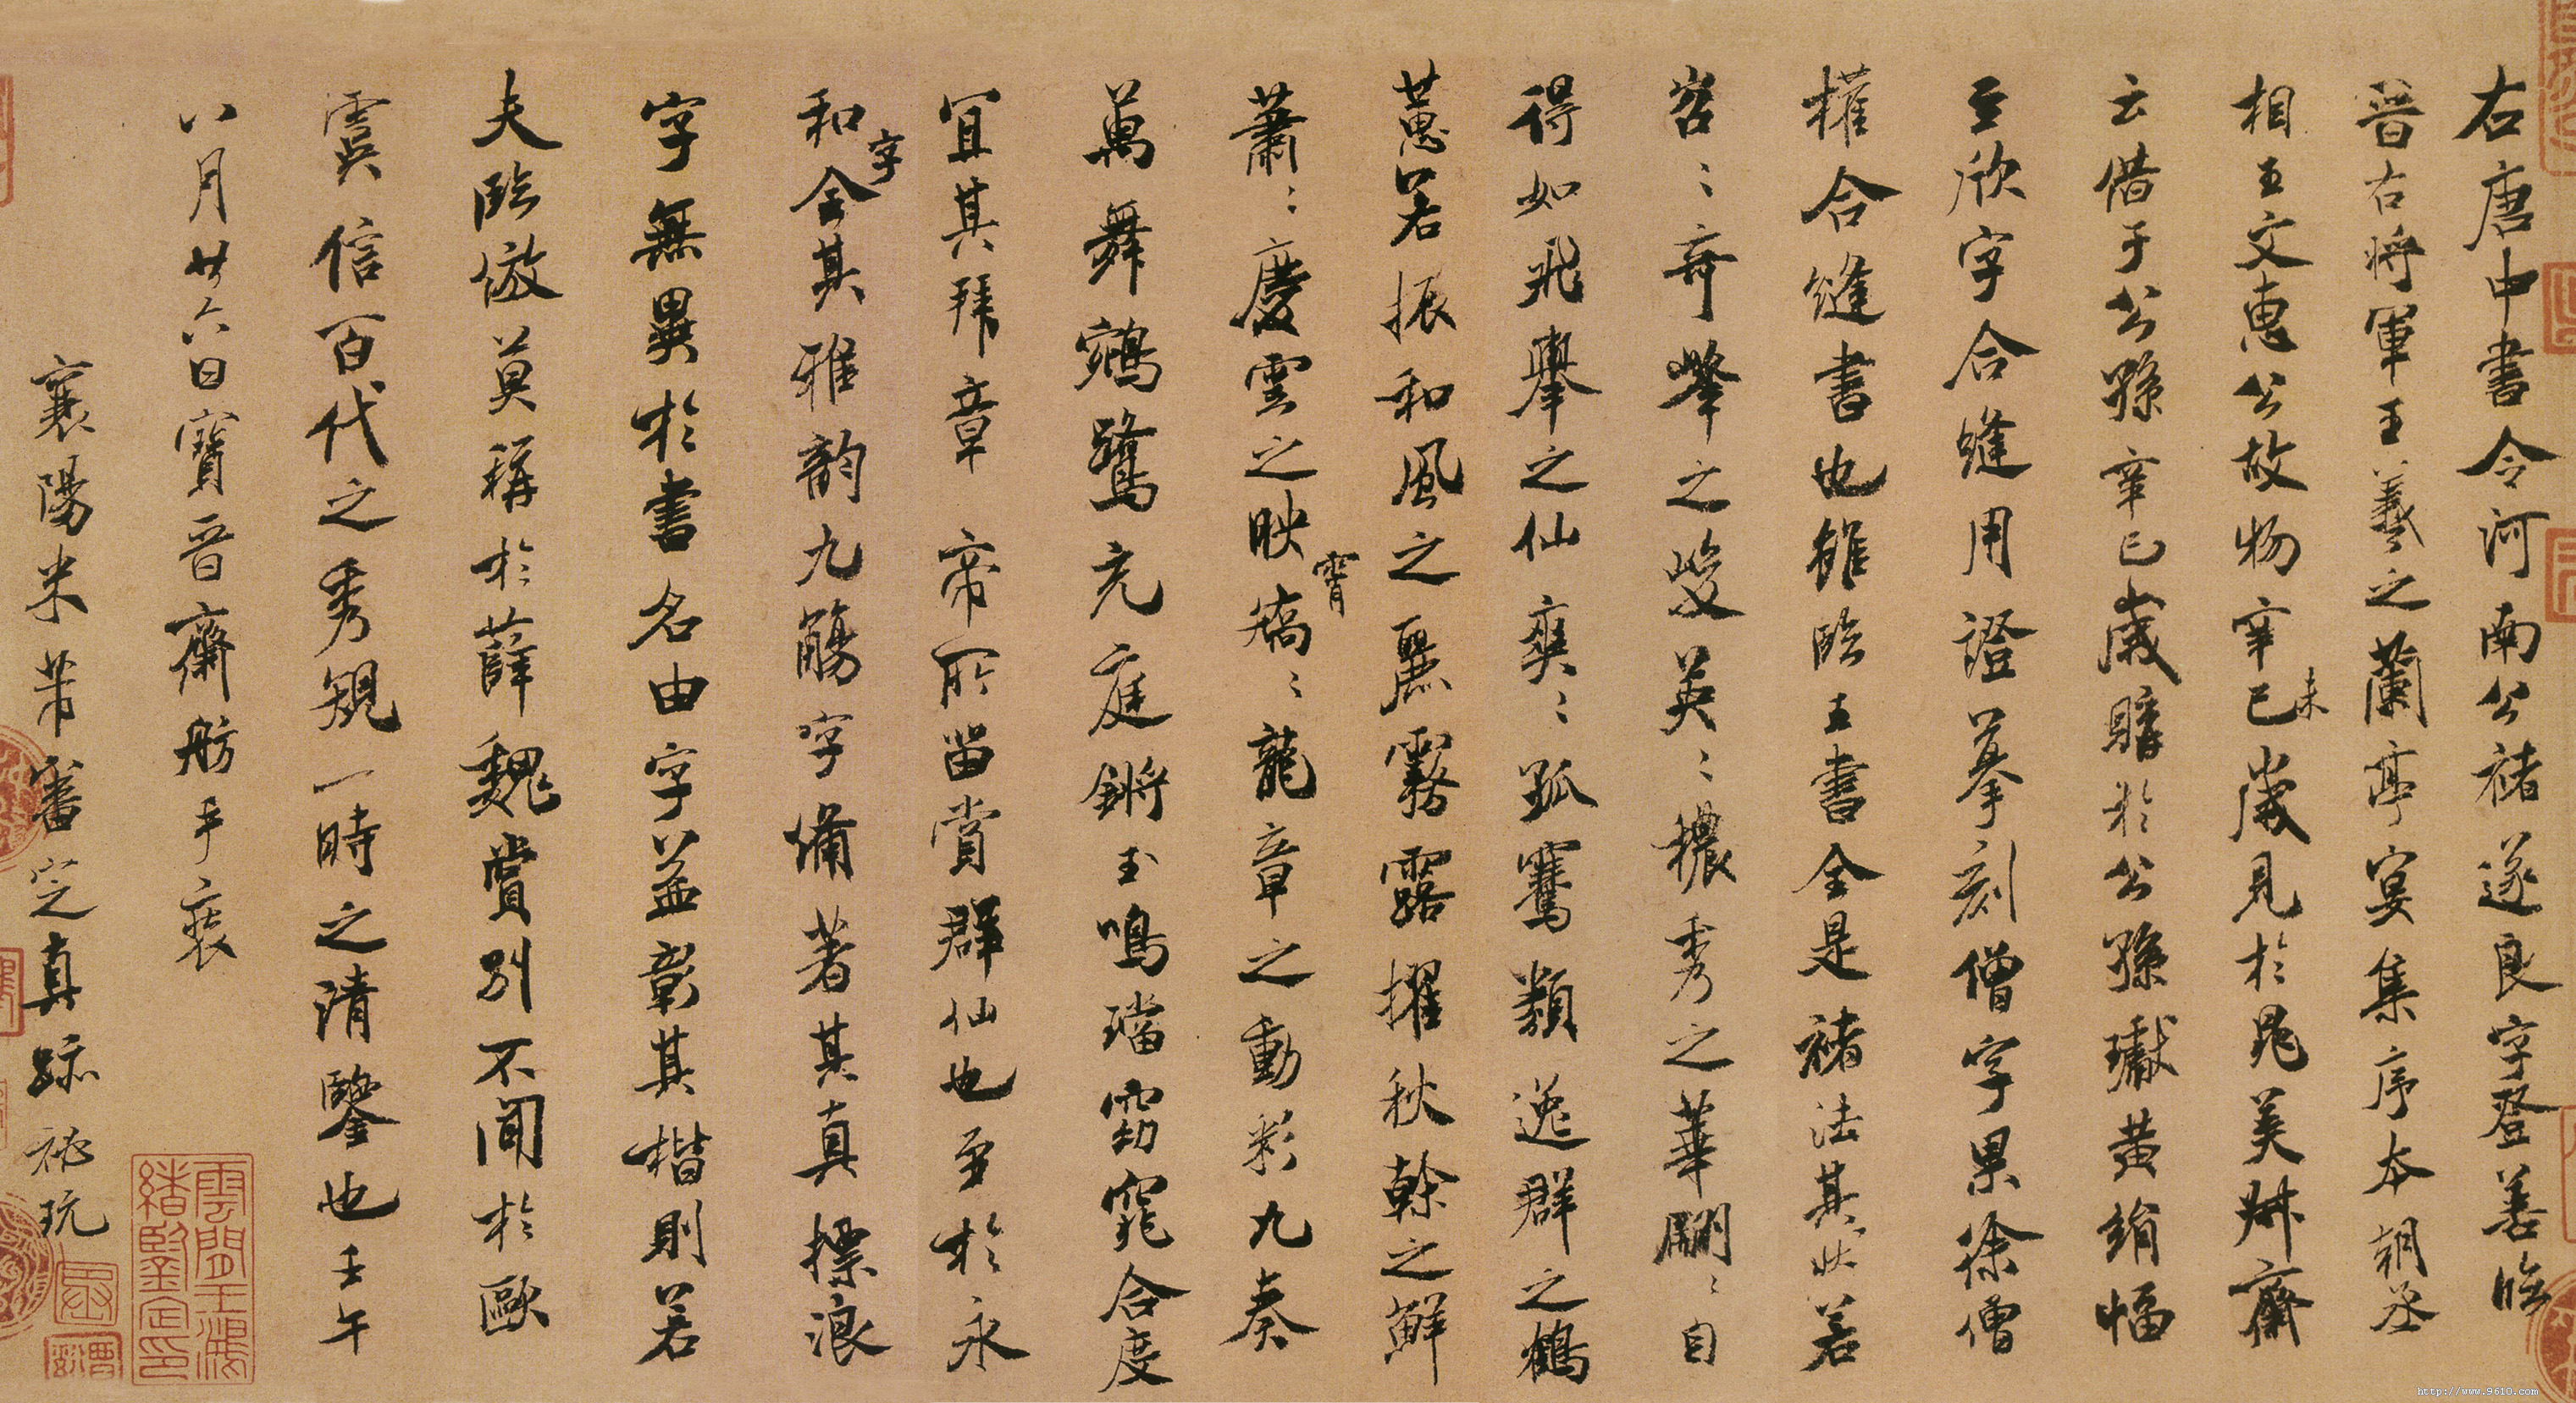 右唐中書令河南公褚遂良字登善臨
晉右將軍王羲之蘭亭宴集序本朝丞
相王文惠公故物辛未已歲見於晁美叔齋
云借于公孫辛巳歲購於公孫瓛黃絹幅
至欣字合縫用證摹刻僧字果徐僧
權合縫書也雖臨王書全是褚法其狀若
岧〻奇峰之峻英〻穠秀之華翩〻自
得如飛舉之仙爽〻孤騫類逸群之鶴
蕙若振和風之麗霧露擢秋幹之鮮
蕭〻慶雲之映霄矯〻龍章之動彩九奏
萬舞鵷鷺充庭鏘玉鳴璫窈窕合度
宜其拜章帝所留賞群仙也至於永
和字全其雅韵九觴字備著其真標浪
字無異於書名由字益彰其楷則若
夫臨倣莫稱於薛魏賞別不聞於歐
虞信百代之秀規一時之清鑒也壬午
八月廿六日寶晉齋舫手裝
襄陽米芾審定真跡秘玩
雲間王鴻緒鑒定印
http://www.9610.com